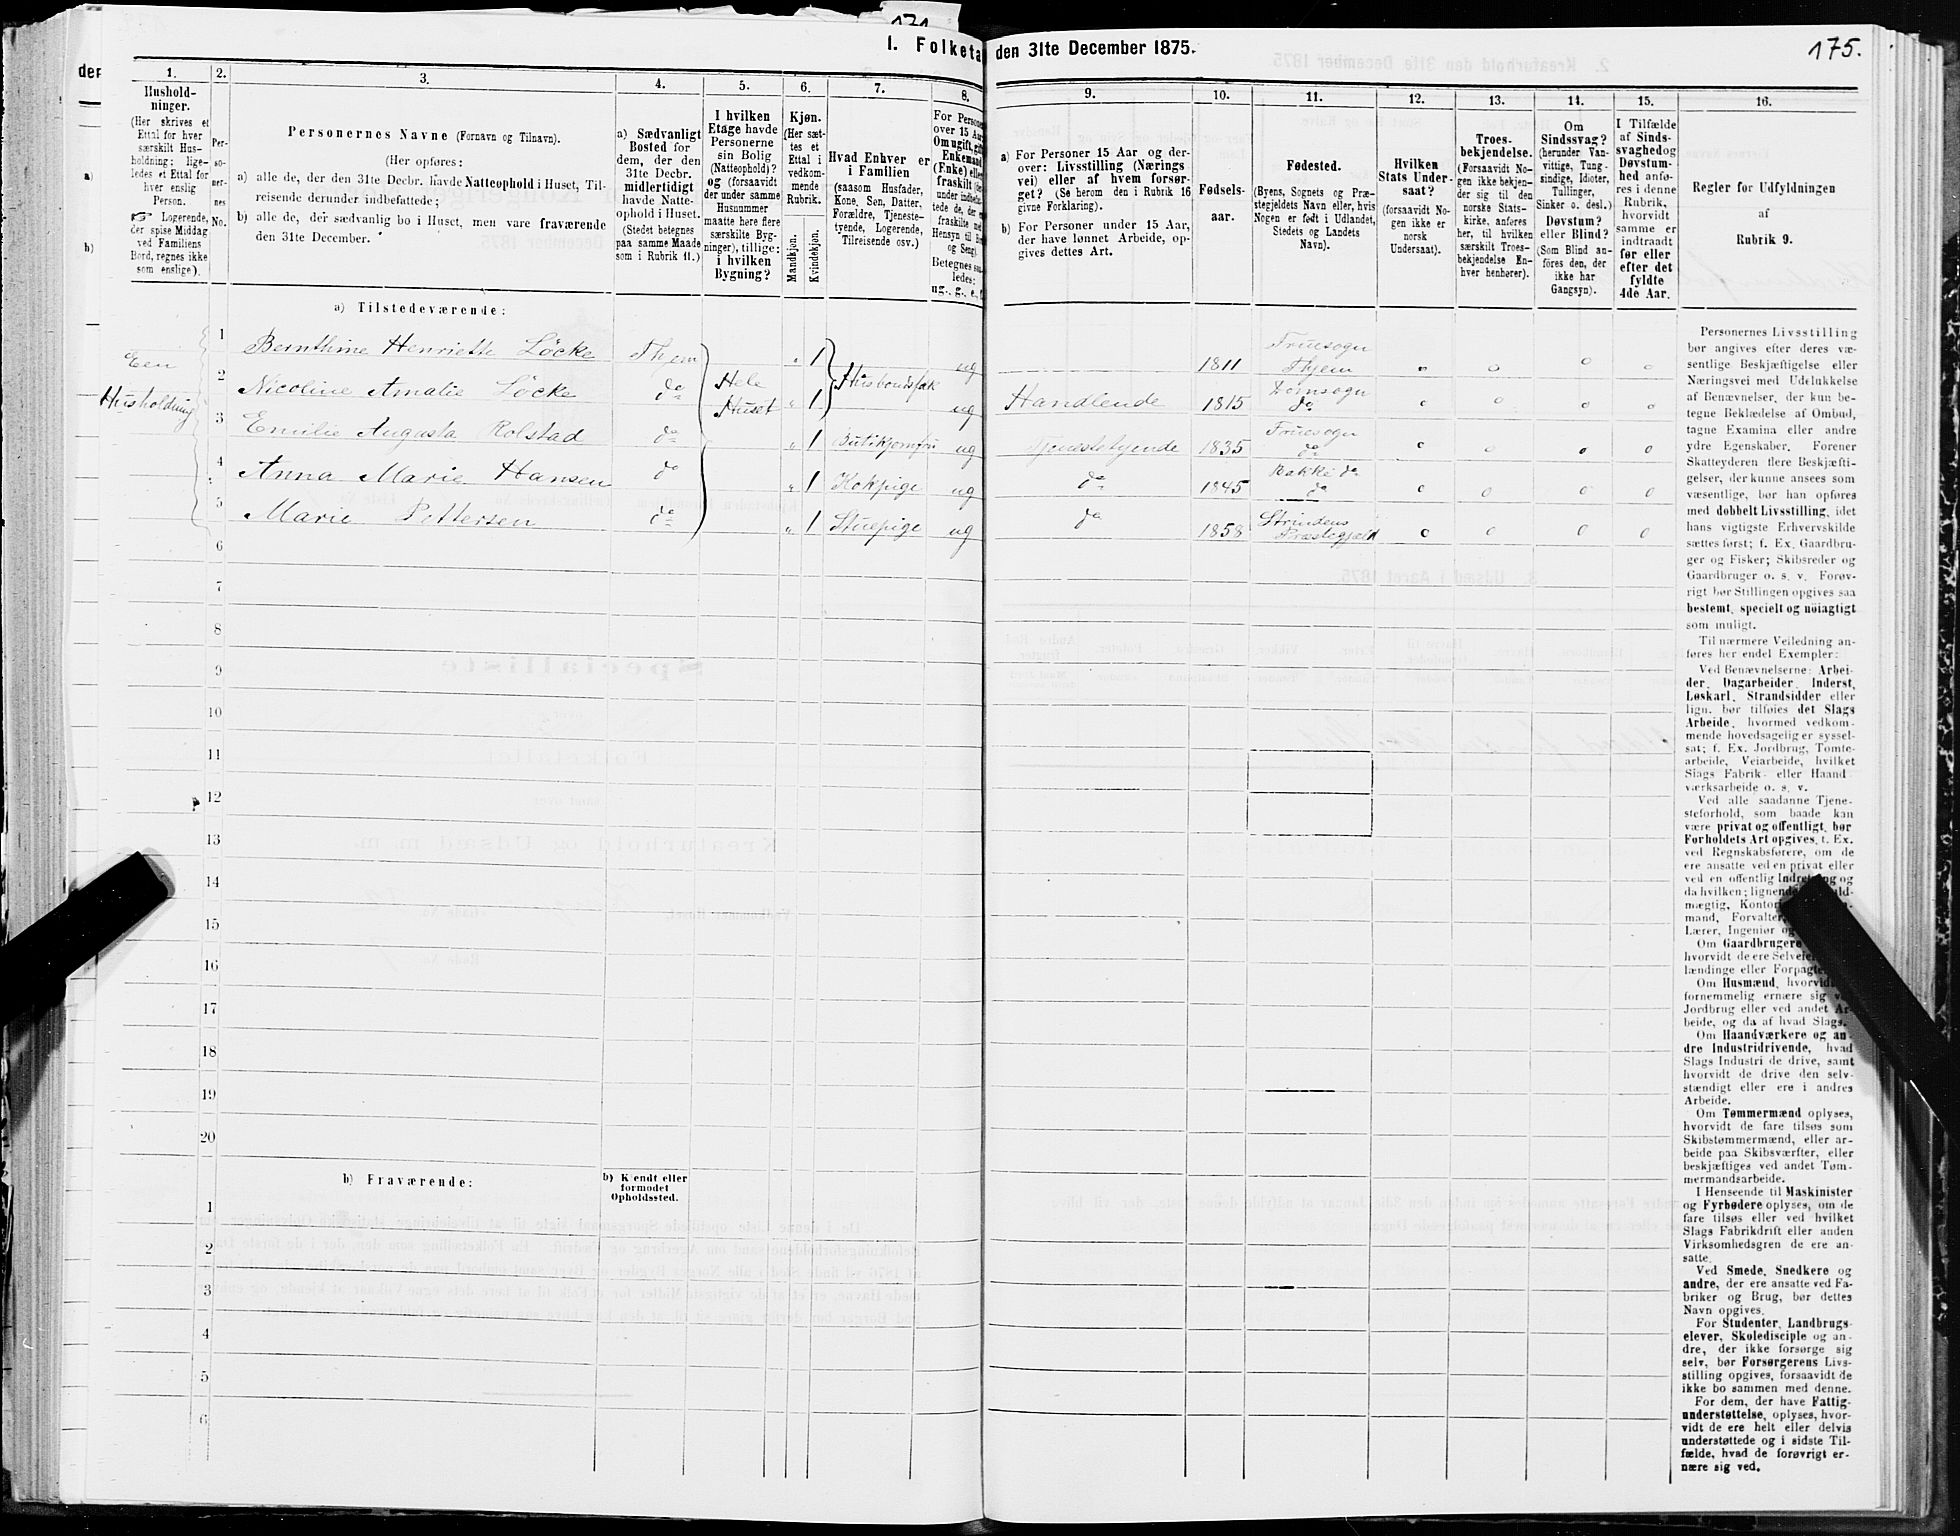 171
I. Folketa den 31te December 1875.
175.
der
a)
b)
1.
Hushold-
ninger.
(Her skrives et
Ettal for hver
særskilt Hus-
holdning; lige-
ledes et Ettal for
hver enslig
Person.
Logerende,
der spise Middag
ved Familiens
Bord, regnes ikke
som enslige).
2.
Per-
so-
ner-
nes
No.
3.
Personernes Navne (Fornavn og Tilnavn).
(Her opføres:
a) alle de, der den 31te Decbr. havde Natteophold i Huset, Til-
reisende derunder indbefattede;
b) alle de, der sædvanlig bo i Huset, men vare fraværende
den 31te December.
4.
a) Sædvanligt
Bosted for
dem, der den
31te Decbr.
midlertidigt
havde Natte-
ophold i Huset.
(Stedet betegnes
paa samme Maade
som i Rubrik 11.)
5.
I hvilken
Etage havde
Personerne
sin Bolig
(Natteophold)?
og (forsaavidt
der under samme
Husnummer
maatte høre flere
særskilte Byg-
ninger), tillige:
i hvilken
Bygning?
6.
Kjøn.
(Her sæt-
tes et
Ettal i
vedkom-
mende
Rubrik.
Mandkjøn.
Kvindekjøn.
7.
Hvad Enhver er
i Familien
(saasom Husfader,
Kone, Søn, Datter,
Forældre, Tjeneste-
tyende, Logerende,
Tilreisende osv.)
8.
For Persone
over 15 Aar
Om ugift, gift
Enkemand
(Enke) elle
fraskilt
under indbe
tede de, der
fraskilte
Hensyn til B
og Seng).
Betegnes saa
ledes:
ug., g., e.,
9.
a) For Personer 15 Aar og der-
over: Livsstilling (Nærings
vei) eller af hvem forsør-
get? (Se herom den i Rubrik 16
givne Forklaring).
b) For Personer under 15 Aar,
der have lønnet Arbeide, op-
gives dettes Art.
10.
Fødsels-
aar.
11.
Fødested.
(Byens, Sognets og Præ-
stegjeldets Navn eller, hvis
Nogen er født i Udlandet,
Stedets og Landets
Navn).
12.
Hvilken
Stats Under-
saat?
(forsaavidt No-
gen ikke er
norsk
Undersaat).
13.
Troes-
bekjendelse.
(Forsaavidt No-
gen ikke bekjen-
der sig til den
norske Stats-
kirke, anføres
her, til hvilken
særskilt Troes-
bekjendelse En-
hver henhører).
14.
Om
Sindssvag?
(herunder Van-
vittige, Tung-
sindige, Idioter,
Tullinger,
Sinker o. desl.)
Døvstum?
eller Blind?
(Som Blind an-
føres den, der
ikke har
Gangsyn).
15.
I Tilfælde
af Sinds-
svaghed og
Døvstum-
hed anfø-
res i denne
Rubrik,
hvorvidt
samme er
indtraadt
før eller
efter det
fyldte
4de Aar.
16.
Regler for Udfyldningen
af
Rubrik 9.
a) Tilstedeværende:
Een
Husholdning
1 Bernthine Henriette Löcke Thjem 1 ug 1811 Fruesogn Thjem o o o o
2 Nicoline Amalie Löcke do Hele Huset 1 ug Handlende 1815 Domsogn do o o o o
3 Emilie Augusta Rolstad do 1 ug Tjenestetyende 1835 Fruesogn do o o o o
4 Anna Marie Hansen do 1 Kokpige ug do 1845 Bakke do do o o o o
5 Marie Pettersen do 1 Stuepige ug do 1858 Strindens Præstegjæld o o o o
6
7
8
9
10
11
12
13
14
15
16
17
18
19
20
b) Fraværende:
b) Kjendt eller
formodet
Opholdssted.
1
2
3
4
5
6
Personernes Livsstilling
bør angives efter deres væ-
sentlige Beskjæftigelse eller
Næringsvei med Udelukkelse
af Benævnelser, der kun be-
tegne Beklædelse af Ombud,
tagne Examina eller andre
ydre Egenskaber. Forener
Skatteyderen flere Beskjæfti-
gelser, der kunne ansees som
væsentlige, bør han opføres
med dobbelt Livsstilling, idet
hans vigtigste Erhvervskilde
sættes først; f. Ex. Gaardbru-
ger og Fisker; Skibsreder og
Gaardbruger o. s. v. Forøv-
rigt bør Stillingen opgives saa
bestemt, specielt og nöiagtigt
som muligt.
Til nærmere Veiledning an-
føres her endel Exempler:
Ved Benævnelserne: Arbei-
der, Dagarbeider, Inderst,
Løskarl, Strandsidder eller
lign. bør tilføies det Slags
Arbeide, hvormed vedkom-
mende hovedsagelig er syssel-
sat; f. Ex. Jordbrug, Tomte-
arbeide, Veiarbeide, hvilket
Slags Fabrik- eller Haand
værksarbeide o. s. v.
Ved alle saadanne Tjene-
steforhold, som baade kan
være privat og offentligt, bør
Forholdets Art opgives, t. Ex.
ved Regnskabsførere, om de
ere ansatte ved en privat eller
ved en offentlig Indretning og
da hvilken; lignende
mægtig, Kontor
mand, Forvalter,
Lærer, Ingeniør og
Om Gaardbrugere
hvorvidt de ere Selveiere,
lændinge eller Forpagtere
Om Husmænd, hvorvidt
fornemmelig ernære sig ved
Jordbrug eller ved andet Ar-
beide, og da af hvad Slags.
Om Haandværkere og an-
dre Industridrivende, hvad
Slags Industri de drive, samt
hvorvidt de drive den selv-
stændigt eller ere i andres
Arbeide.
Om Tømmermænd oplyses,
hvorvidt de fare tilsøs som
Skibstømmermænd, eller ar-
beide paa Skibsværfter, eller
beskjæftiges ved andet Tøm-
mermandsarbeide.
I Henseende til Maskinister
og Fyrbødere oplyses, om de
fare tilsøs eller ved hvilket
Slags Fabrikdrift eller anden
Virksomhedsgren de ere an-
satte.
Ved Smede, Snedkere og
andre, der ere ansatte ved Fa-
briker og Brug, bør dettes
Navn opgives.
For Studenter, Landbrugs-
elever, Skoledisciple og an-
dre, der ikke forsørge sig
selv, bør Forsørgerens Livs-
stilling opgives, forsaavidt de
ikke bo sammen med denne.
For dem, der have Fattig-
understøttelse, oplyses, hvor-
vidt de ere helt eller delvis
understøttede og i sidste Til-
fælde, hvad de forøvrigt er-
nære sig ved.